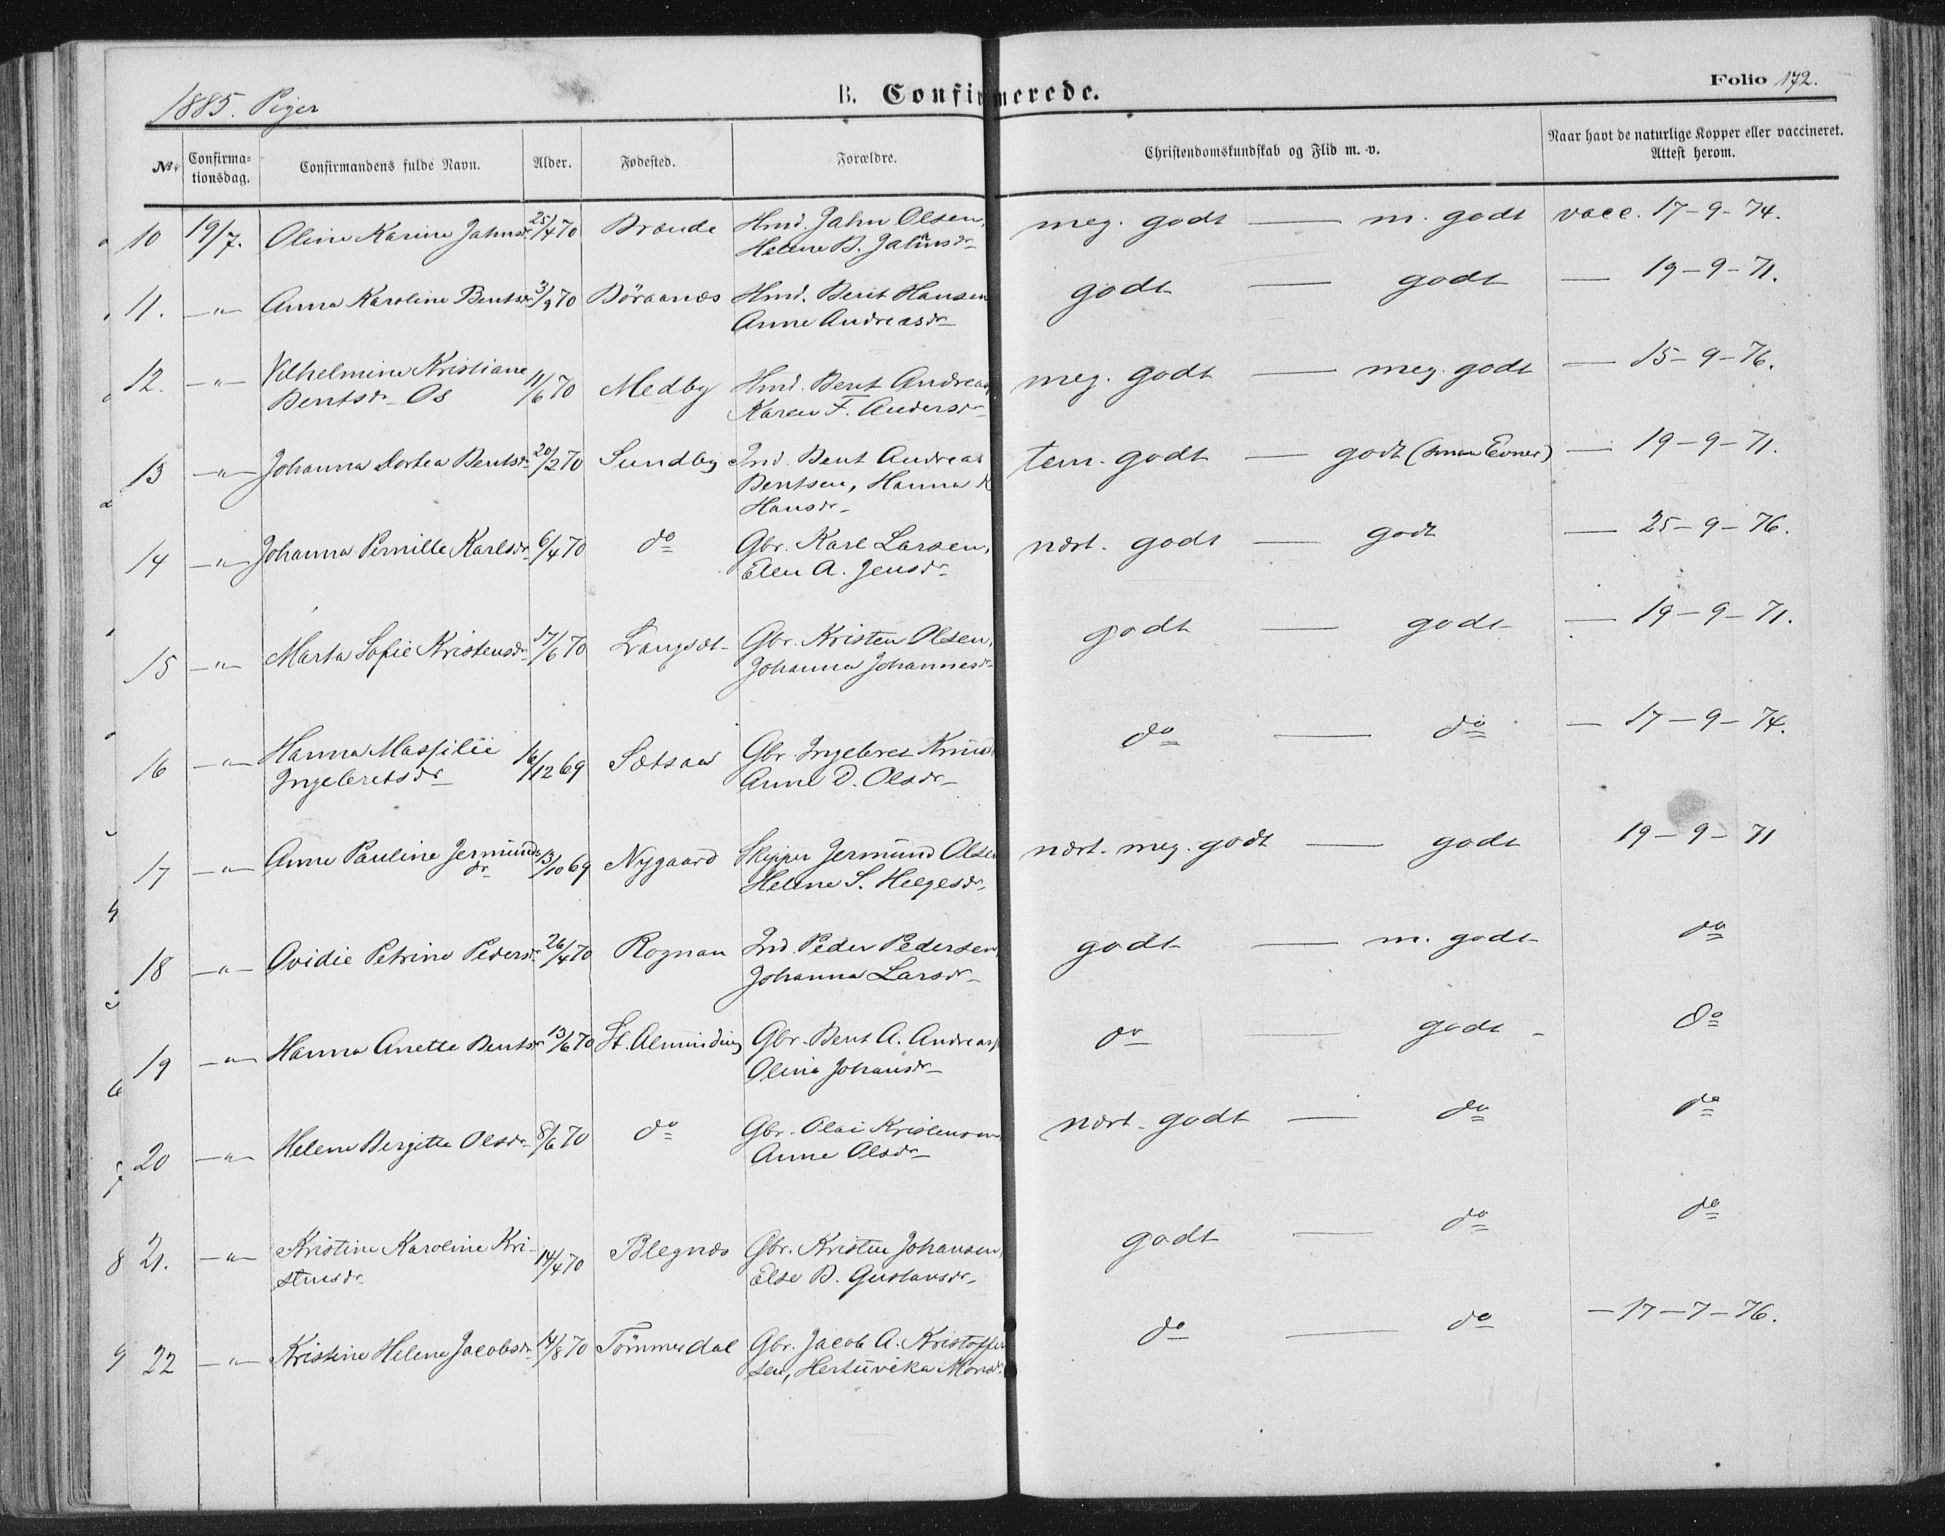 1885. Piger
B. Confirmerede.
Folio 172.
No. Confirma-tionsdag. Confirmandens fulde Navn. Alder. Fødested. Forældre. Christendomskundskab og Flid m. v. Naar havt de naturlige Kopper eller vaccineret. Attest herom.
10 19/7. Oline Karine Jahnsdr 25/4 70 Brænde Hmd. Jahn Olsen, meg. godt — m. godt vacc. 17-9-74.
Helene B. Jahnsdr
11. —"— Anna Karoline Bentsdr 3/9 70 Böraanæs Hmd. Bent Hansen godt — godt — 19-9-71.
Anne Andreasdr
12. —"— Vilhelmine Kristiane 11/6 70 Medby Hmd. Bent Andreas meg. godt — meg. godt — 15-9-76.
Bentsdr Os Karen F. Andersdr
13 —"— Johanna Dortea Bentsdr 20/2 70 Sundby Ind. Bent Andreas tem. godt — godt (smaa Evner) — 19-9-71.
Bentsen, Hanna K
Hansdr
14 —"— Johanna Pernille Karlsdr 6/4 70 do Gbr. Karl Larsen, nært. godt — godt — 25-9-76.
Elen A. Jensdr
15 —"— Marta Sofie Kristensdr 17/6 70 Langsæt Gbr. Kristen Olsen, godt — godt — 19-9-71.
Johanna Johannesdr
16 —"— Hanna Massilie 16/12 69 Sætsaa Gbr. Ingebret Knud do — do — 17-9-74.
Ingebretsdr Anne D. Olsdr
17 —"— Anne Pauline Jermunds 13/10 69 Nygaard Skipper Jermund Olsen nært. meg. godt — godt 19-9-71
dr Helene S. Helgesdr
18 —"— Ovidie Petrine Pedersdr 26/4 70 Rognan Ind. Peder Pedersen, godt — m. godt do
Johanna Larsdr
19 —"— Hanna Anette Bentsdr 13/6 70 St. Alminding Gbr. Bent A. Andreas do — godt — do
Olina Johansdr
20 —"— Helene Bergitte Olsdr 8/6 70 do Gbr. Olai Kristensen nært. godt — do do
Anne Olsdr
21. —"— Kristine Karoline Kri- 14/4 70 Blegnæs Gbr. Kristen Johansen, godt — do do
stensdr Else B. Gustavsdr
22 —"— Kristine Helene Jacobsdr 14/8 70 Tömmerdal Gbr. Jacob A. Kristoffer do — do — 17-7-76.
sen, Hertuvika Monsdr